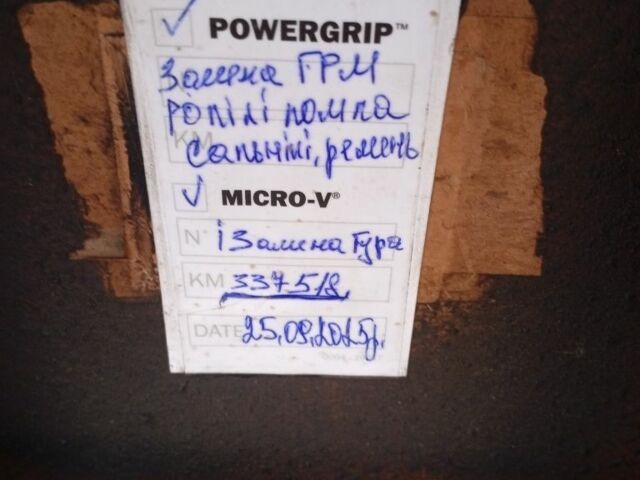 POWERGRIP™
Заміна ГРМ
роліки помпа
KM
сальніки, ремень
MICRO-V®
N° і Заміна Гура
KM 337518
DATE 25.09.2025р.